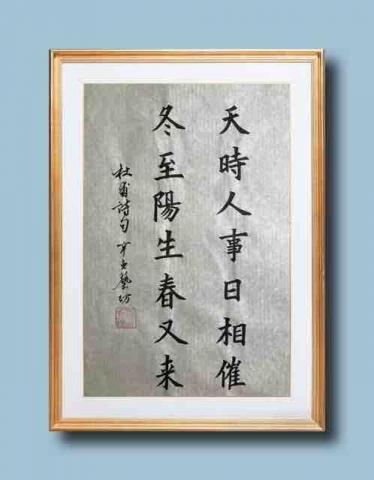 天時人事日相催
冬至陽生春又来
杜甫詩句
藝坊